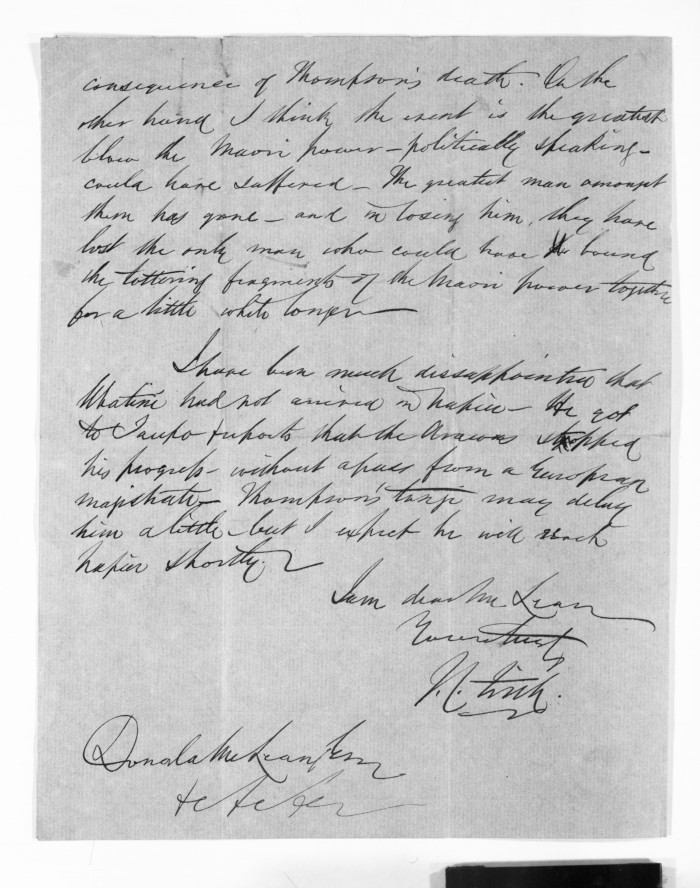 consequence of Thompson's death. On the
other hand I think the event is the greatest
blow the Maori power - politically speaking -
could have suffered - The greatest man amongst
them has gone - and in losing him, they have
lost the only man who could have bound
the tottering fragments of the Maori power together
for a little while longer
I have been much dissappointed that
Whatine had not arrived in Napier - He got
to Taupo & reports that the Arawas stopped
his progress - without a pass from a European
magistrate - Thompson's tangi may delay
him a little - but I expect he will reach
Napier Shortly.
I am dear McLean
Yours truly
Donald McLean Esqr
&c &c &c